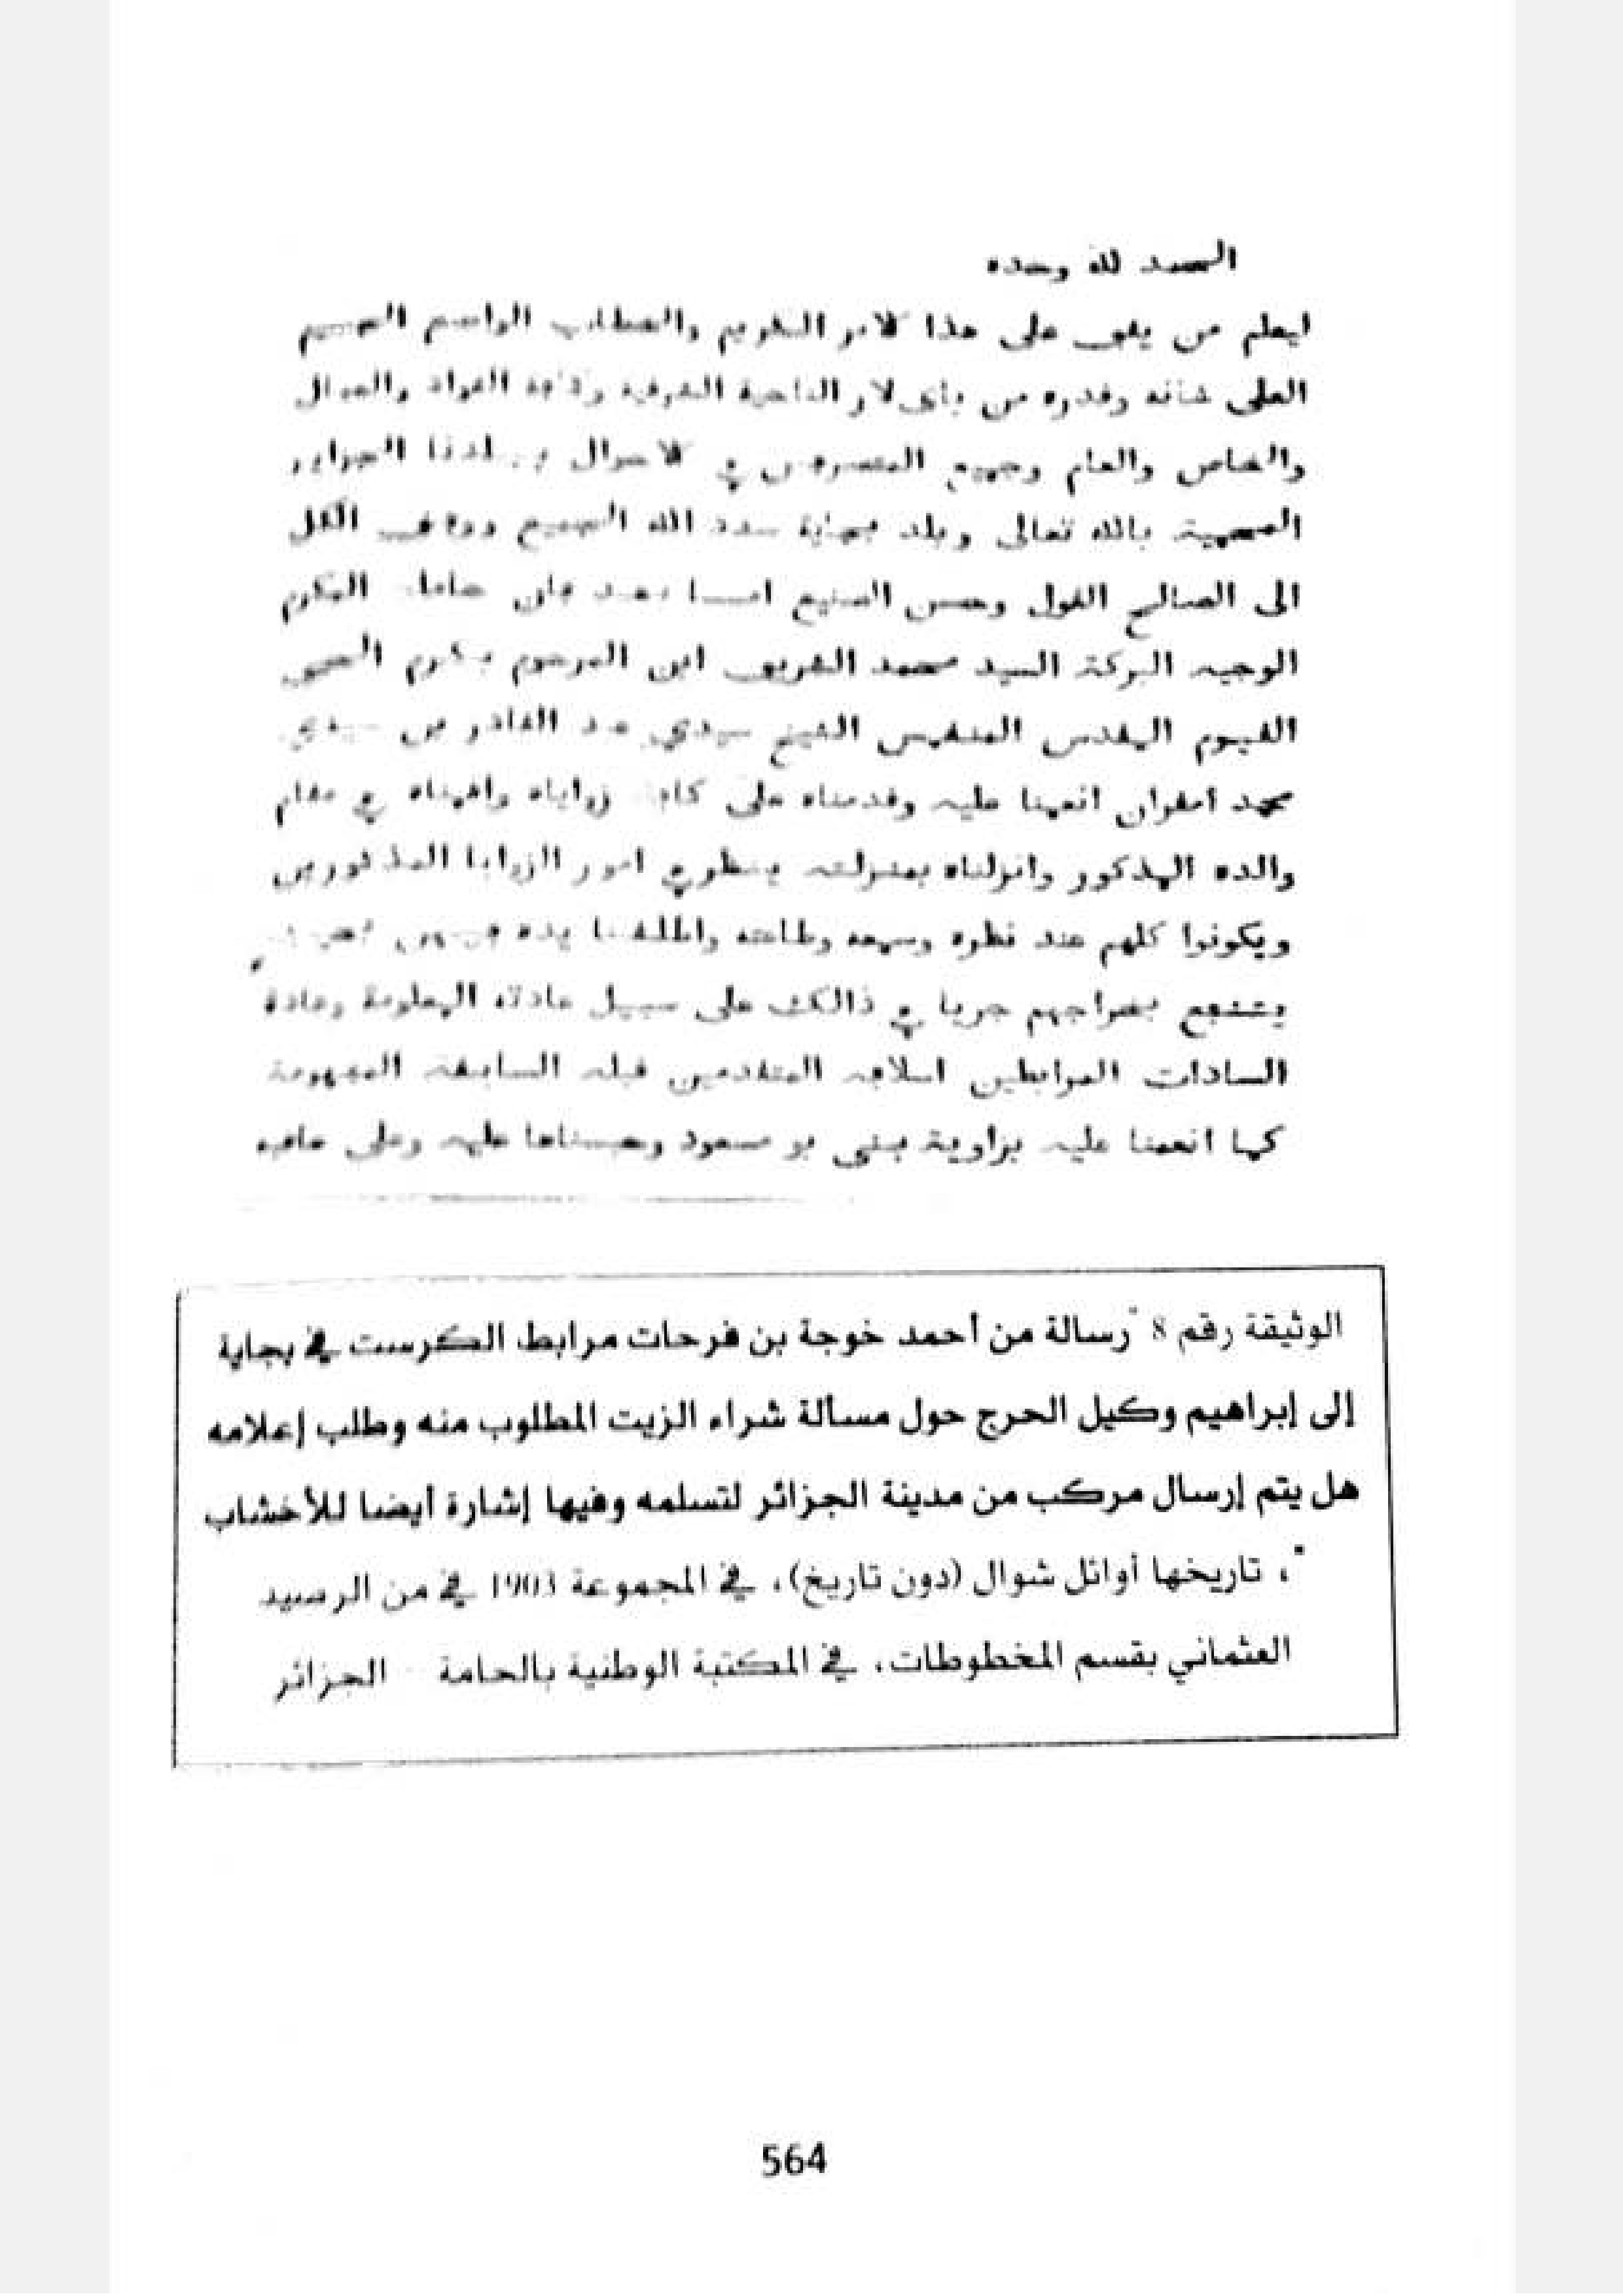 الحمد لله وحده
ليعلم من يقف على هذا الامر الكريم والخطاب الواضح الجسيم
العلى شانه وقدره من باى لار الناحية الشرقية وكافة القواد والعمال
والخاص والعام وجميع المتصرفين في الاحوال ببلدنا الجزاير
المحمية بالله تعالى وبلد بجاية سدد الله الجميع ووفق الكل
الى الصالح القول وحسن الصنيع امـــا بعــد فان حامله المكرم
الوجيه البركة السيد محمد الشريف ابن المرحوم بكرم الحي
القيوم المقدس المنفيس الشيخ سيدي عبد القادر بن سيدي
محمد امقران انعمنا عليه وقدمناه على كافة زواياه واقمناه في مقام
والده المذكور وانزلناه بمنزلته ينظر في امور الزوايا المذكورين
ويكونوا كلهم عند نظره وسمعه وطاعته واطلقنا يده
ينتفع بخراجهم جريا في ذالك على سبيل عادته المعلومة وعادة
السادات المرابطين اسلافه المتقدمين قبله السابقة المفهومة
كما انعمنا عليه بزاوية بني بو مسعود وحبسناها عليه وعلى عاقبه
الوثيقة رقم 8 "رسالة من أحمد خوجة بن فرحات مرابط الكرست في بجاية
إلى إبراهيم وكيل الحرج حول مسألة شراء الزيت المطلوب منه وطلب إعلامه
هل يتم إرسال مركب من مدينة الجزائر لتسلمه وفيها إشارة أيضا للأخشاب
"، تاريخها أوائل شوال (دون تاريخ)، في المجموعة 1903 في من الرصيد
العثماني بقسم المخطوطات، في المكتبة الوطنية بالحامة - الجزائر
564